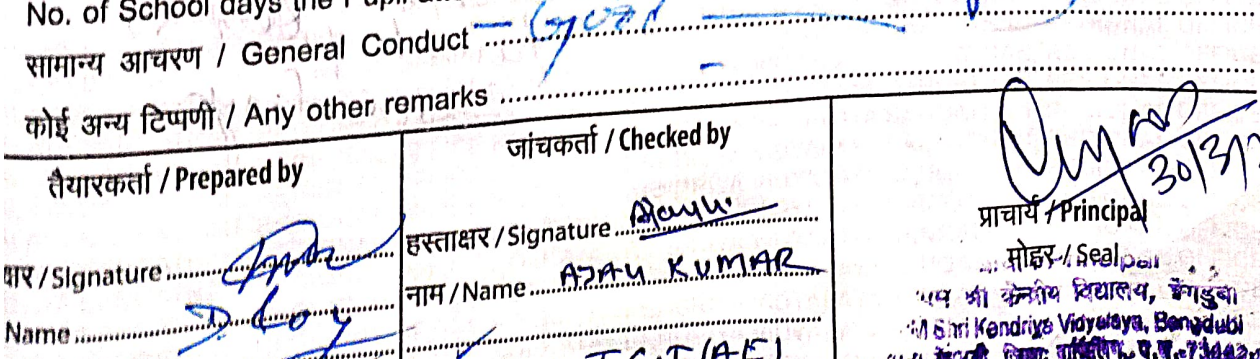 No. of School days the Pupil
सामान्य आचरण / General Conduct – Good –
कोई अन्य टिप्पणी / Any other remarks –
तैयारकर्ता / Prepared by
जांचकर्ता / Checked by
30/3/
प्राचार्य / Principal
क्षर / Signature
हस्ताक्षर / Signature Ajay K.
मोहर / Seal
Name D. Roy
नाम / Name AJAY KUMAR
श्री केन्द्रीय विद्यालय, बेंगडुबी
Shri Kendriya Vidyalaya, Bengdubi